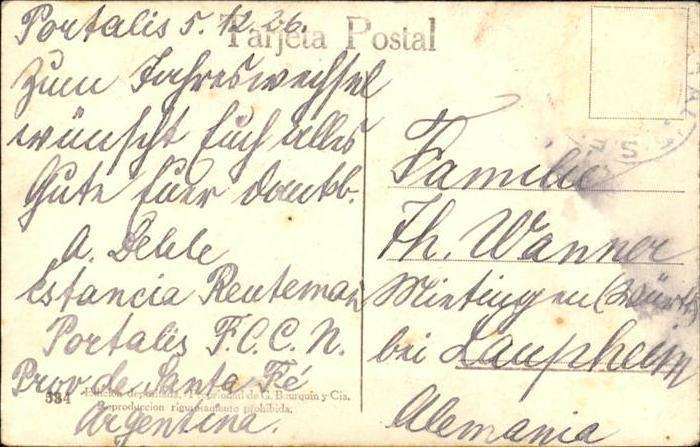 Portalis 5.12.26.
Tarjeta Postal
Zum Jahreswechsel
wünscht Euch alles
Gute Euer dankb.
A. Dehle
Estancia Reuteman
Portalis F.C.C.N.
Prov. de Santa Fé
Argentina.
534 Edicion depositada. Propriedad de G. Bourquin y Cia.
Reproduccion rigurosamente prohibida.
Familie
Th. Wanner
Mietingen (Württ.
bei Laupheim
Alemania